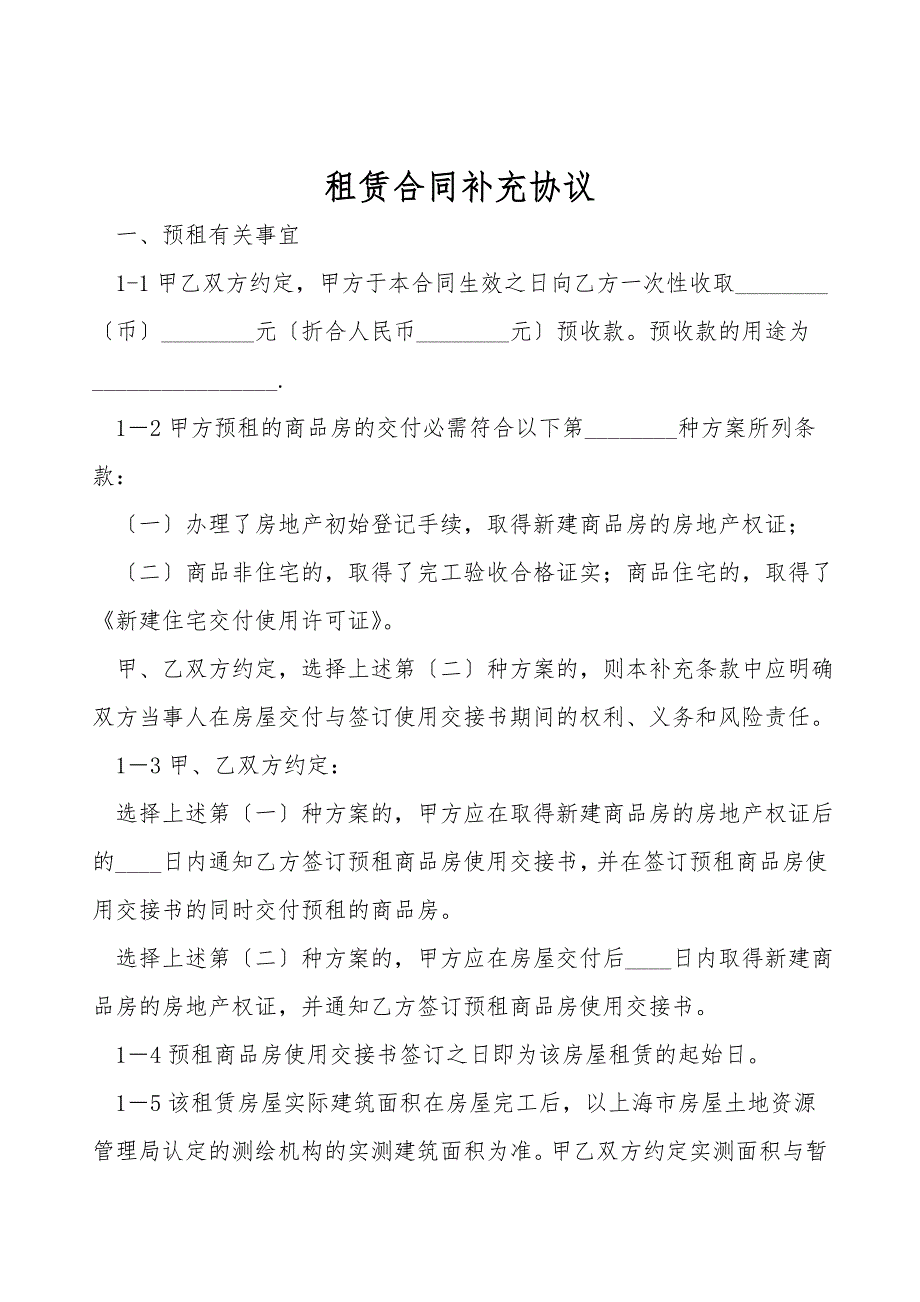 租赁合同补充协议
一、预租有关事宜
1-1 甲乙双方约定，甲方于本合同生效之日向乙方一次性收取________
〔币〕________元〔折合人民币________元〕预收款。预收款的用途为
________________.
1－2 甲方预租的商品房的交付必需符合以下第________种方案所列条
款：
〔一〕办理了房地产初始登记手续，取得新建商品房的房地产权证；
〔二〕商品非住宅的，取得了完工验收合格证实；商品住宅的，取得了
《新建住宅交付使用许可证》。
甲、乙双方约定，选择上述第〔二〕种方案的，则本补充条款中应明确
双方当事人在房屋交付与签订使用交接书期间的权利、义务和风险责任。
1－3 甲、乙双方约定：
选择上述第〔一〕种方案的，甲方应在取得新建商品房的房地产权证后
的____日内通知乙方签订预租商品房使用交接书，并在签订预租商品房使
用交接书的同时交付预租的商品房。
选择上述第〔二〕种方案的，甲方应在房屋交付后____日内取得新建商
品房的房地产权证，并通知乙方签订预租商品房使用交接书。
1－4 预租商品房使用交接书签订之日即为该房屋租赁的起始日。
1－5 该租赁房屋实际建筑面积在房屋完工后，以上海市房屋土地资源
管理局认定的测绘机构的实测建筑面积为准。甲乙双方约定实测面积与暂